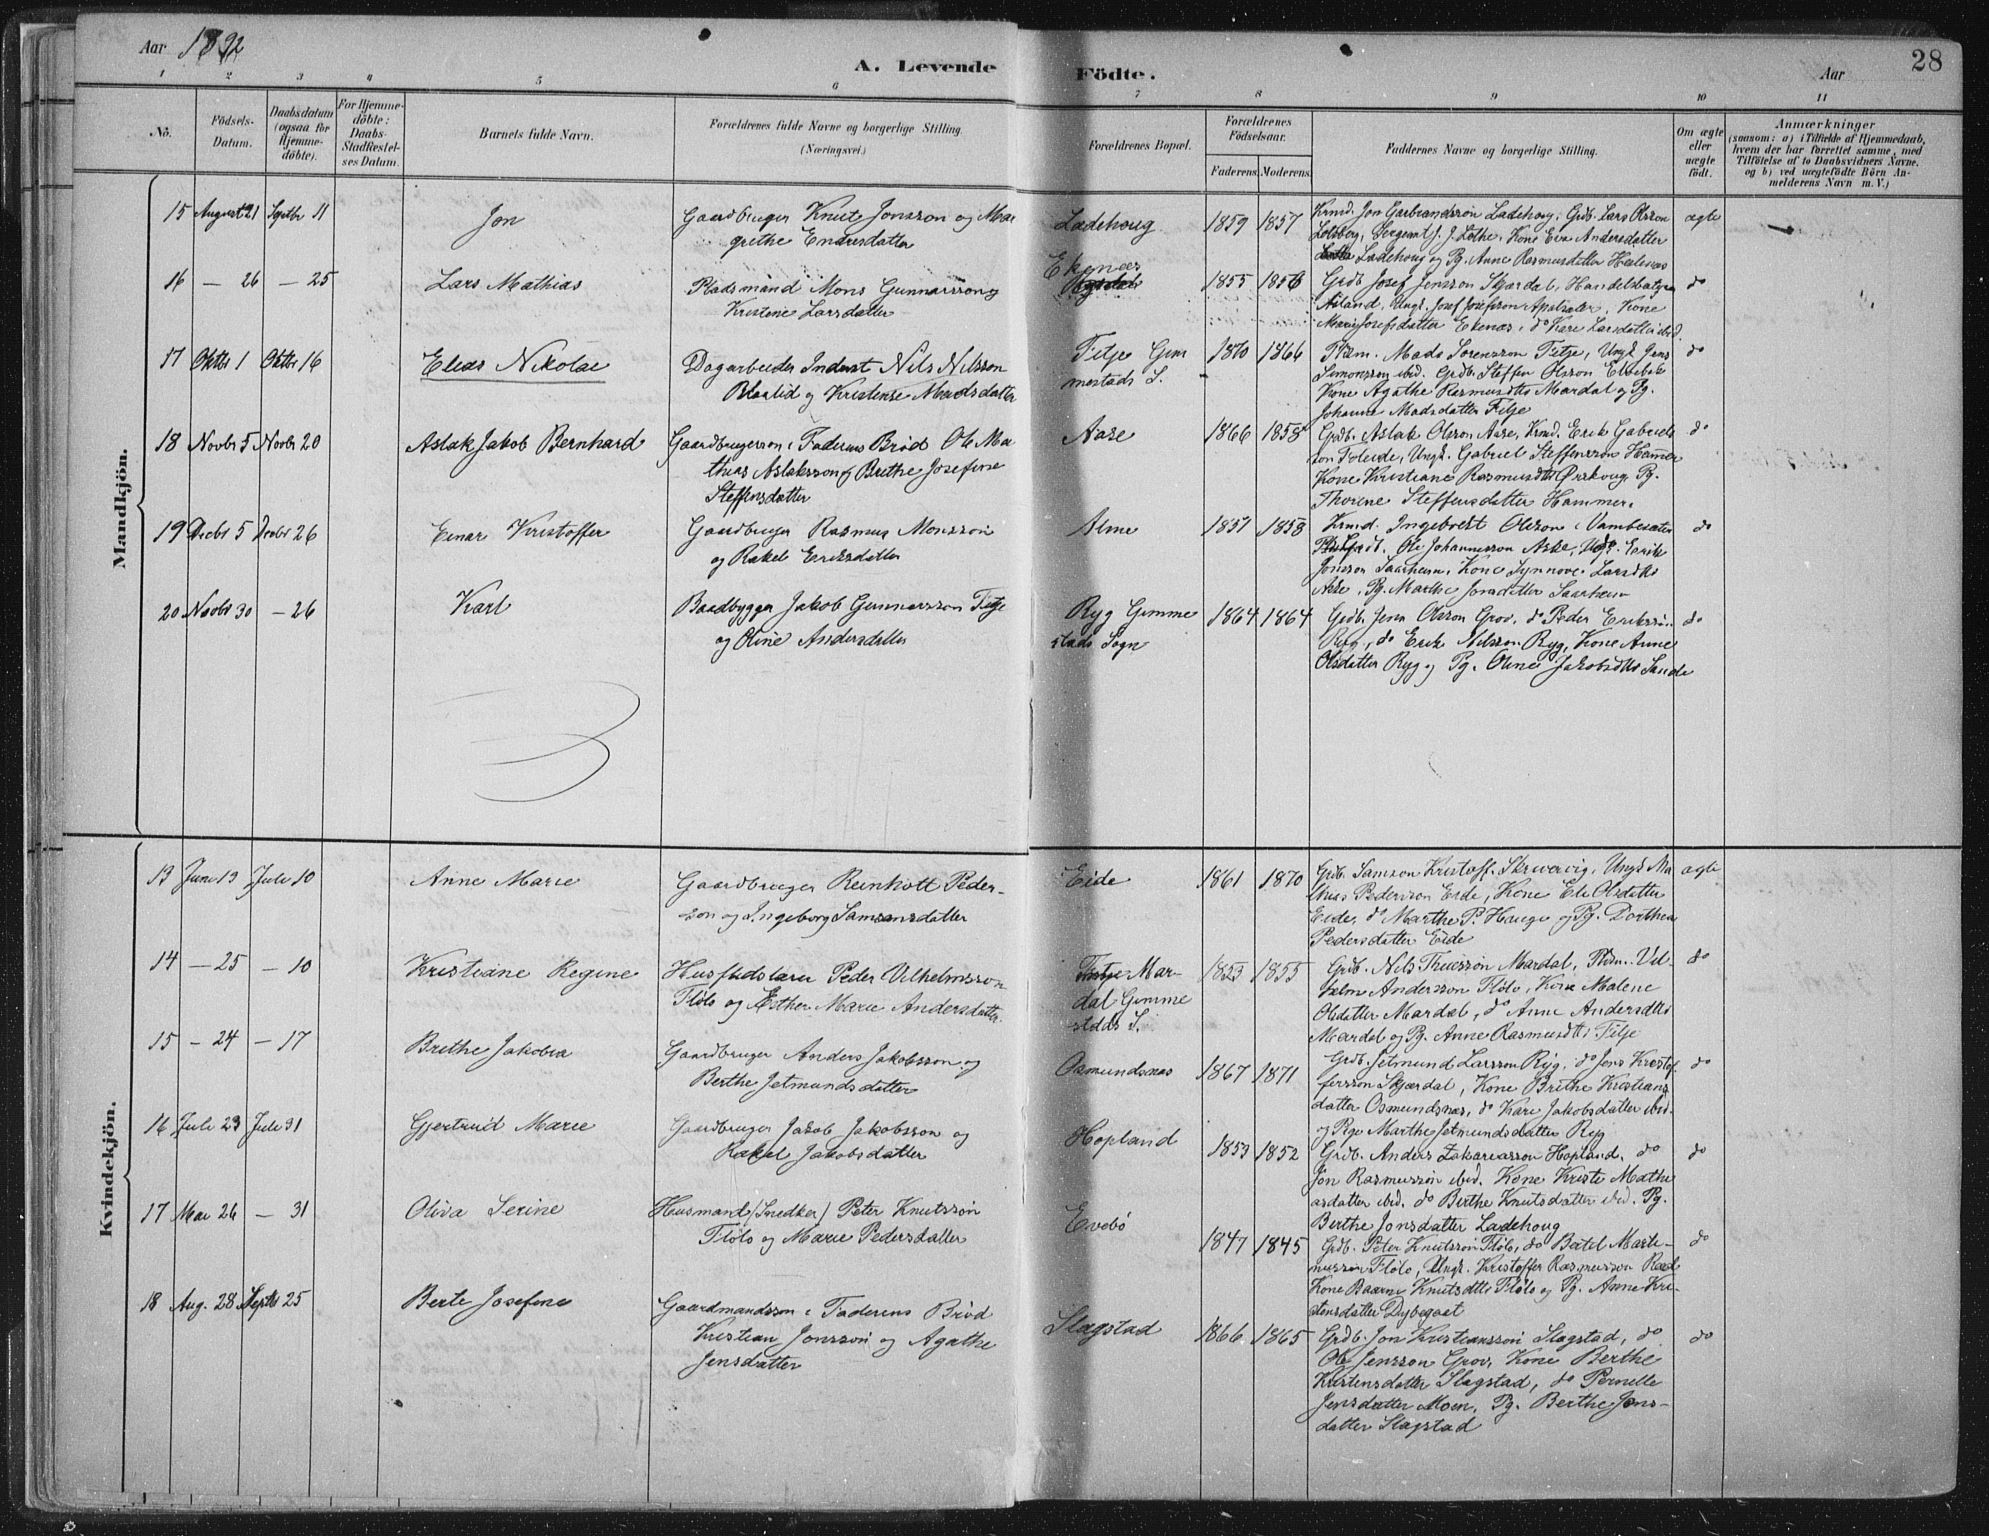 Aar 1892
A. Levende Födte.
Aar
28
1 2 3 4 5 6 7 8 9 10 11
No.
Födsels-
Datum.
Daabsdatum
(ogsaa for
Hjemme-
döbte).
For Hjemme-
döbte:
Daabs-
Stadfæstel-
ses Datum.
Barnets fulde Navn.
Forældrenes fulde Navne og borgerlige Stilling.
(Næringsvei.)
Forældrenes Bopæl.
Forældrenes
Födselsaar.
Faderens. Moderens.
Faddernes Navne og borgerlige Stilling.
Om ægte
eller
uægte
födt.
Anmærkninger
(saasom: a) i Tilfælde af Hjemmedaab,
hvem der har forrettet samme, med
Tilföielse af to Daabsvidners Navne.
og b) ved uægtefödte Börn An-
melderens Navn m. V.)
Mandkjön.
15 August 21 Septbr 11 Jon
Gaardbruger Knut Jonsson og Mar
grethe Endresdatter
Ladehoug 1859 1857
Krmd. Jon Gurbrandssön Ladehoug, Grdb. Lars Olsson
Sergeant J. J. Lothe, Kone Eva Andersdatter
Ladehoug og Pg. Anne Rasmusdatter
ægte
16 — 26 — 25 Lars Mathias
Pladsmand Mons Gunnarsson og
Kristene Larsdatter
Ekenæs
1855 1856
Grdb. Josef Jensson Skjærdal,
Aaland, Ungk. Josef Josefsson Apalsæter, Kone
Marie Josefsdatter Ekenæs, do Kari Larsdatter ibid.
do
17 Oktbr 1 Oktbr 16 Elias Nikolai
Dagarbeider Inderst Nils Nilsson
Blaalid og Kristense Madsdatter
Fitje Gim
mestads S.
1870 1866
Mads Sorensson Fitje, Ungk. Jens
Simonsson ibid. Grdb. Steffen Olsson
Kone Agathe Rasmusdtr Mardal og Pg.
Johanne Madsdatter Fitje
do
18 Novbr 5 Novbr 20 Aslak Jakob Bernhard
Gaardbrugersön i Faderens Bröd Ole Ma
thias Aslaksson og Brithe Josefine
Steffensdatter
Aase 1866 1858
Grdb. Aslak Olsson Aase, Krmd. Erik Gabriels
son Ungk. Gabriel Steffensson Hammer
Kone Kristiane Rasmusdtr Ørskoug, Pg.
Thorine Steffensdatter Hammer.
do
19 Decbr 5 Decbr 26 Einar Kristoffer
Gaardbruger Rasmus Monsson
og Rakel Eriksdatter
Alme 1857 1858
Krmd. Ingebrekt Olsson
Ole Johannesson Aske, Ungk. Erik
Jonsson Saarheim, Kone Synnove Larsdtr
Pg. Marthe Jonsdatter Saarheim
do
20 Novbr 30 — 26 Karl
Baadbygger Jakob Gunnarsson Fitje
og Oline Andersdatter
Ryg Gimme
stads Sogn
1864 1864
Grdb. Jens Olsson Grov, do Peder Erikssön
Ryg, do Erik Nilsson Ryg, Kone Anne
Olsdatter Ryg og Pg. Oline Jakobsdtr Sande
do
Kvindekjön.
13 Juni 19 Juli 10 Anne Marie
Gaardbruger Reinholt Peder-
son og Ingeborg Samsonsdatter
Eide 1861 1870
Grdb. Samson Kristoff. Skrivervig, Ungk. Ma
thias Pederson Eide, Kone Eli Olsdatter
Eide, do Marthe P. Hauge og Pg. Dorthea
Pedersdatter Eide
ægte
14 — 25 — 10 Kristiane Regine
Peder Vilhelmsson
Flölo og Esther Marie Andersdatter.
Mar-
dal Gimme
stads S.
1853 1855
Grdb. Nils Mardal, Vil-
helm Andersson Flölo, Kone Malene
Olsdatter Mardal, do Anne Andersdtr
Mardal og Pg. Anne Rasmusdtr Fitje
do
15 — 24 — 17 Brithe Jakobea
Gaardbruger Anders Jakobsson og
Berthe Jetmundsdatter
Osmundsnæs 1867 1871
Grdb. Jetmund Larsson Ryg, do Jens Kristof
fersson Skjærdal, Kone Brithe Kristians
datter Osmundsnæs, do Kari Jakobsdatter ibid.
og Pige Marthe Jetmundsdatter Ryg
do
16 Juli 23 Juli 31 Gjertrud Marie
Gaardbruger Jakob Jakobsson og
Rakel Jakobsdatter
Hopland 1853 1852
Grdb. Anders Zakariasson Hopland, do
Jon Rasmusson ibid. Kone Kristi Mathi
asdatter ibid. do Berthe Knutsdatter ibid. Pg.
Berthe Jonsdatter Ladehoug
do
17 Mai 26 — 31 Oliva Serine
Husmand (Snedker) Peter Knutssön
Flölo og Marie Pedersdatter
Evebö 1847 1845
Grdb. Peter Knutsson Flölo, do Bertel Marti-
nusson Flölo, Ungk. Kristoffer Rasmusson
Kone Knutsdtr Flölo og Pg. Anne Kri-
stensdatter
do
18 Aug. 28 Septbr 25 Berte Josefine
Gaardmandssön i Faderens Bröd
Kristian Jonssön og Agathe
Jensdatter
Slagstad 1866 1865
Grdb. Jon Kristianssön Slagstad, do
Ole Jensson Grov, Kone Berthe
Kristensdatter Slagstad, do Pernille
Jensdatter Moen, Pg. Berthe Jons-
datter Slagstad
do